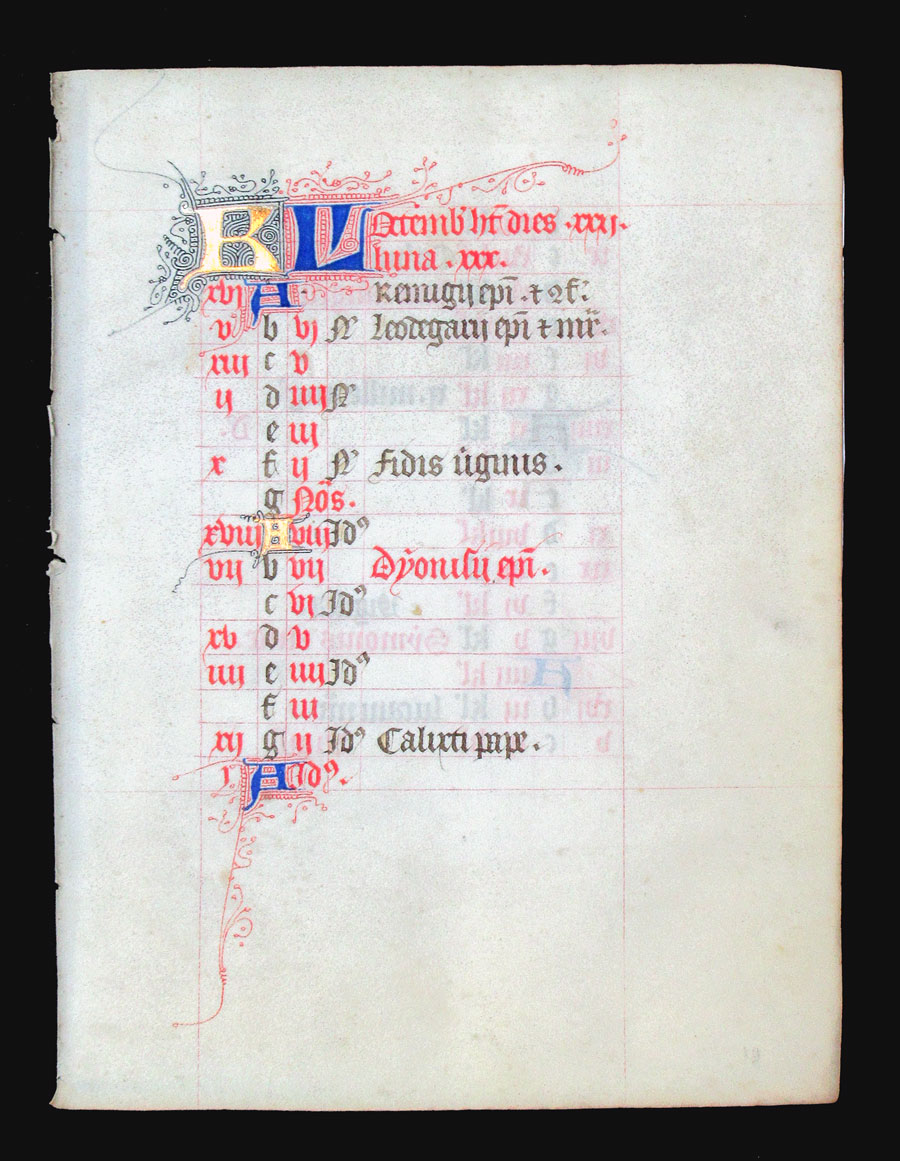 KL Octemb' ht̄ dies .xxxj.
luna .xxx.
xvj A Remigij ep̄i . ⁊ 
v b vj N̄ Leodegarij ep̄i ⁊ mr̄.
xiij c v
ij d iiij N̄
e iij
x f ij N̄ Fidis u̇ginis .
g No̅s.
xviij A viij Idꝰ
vij b vij Dyonisij ep̄i .
c vj Idꝰ
xv d v
iiij e iiij Idꝰ
f iij
xij g ij Idꝰ Calixti pape .
j A Idꝰ.